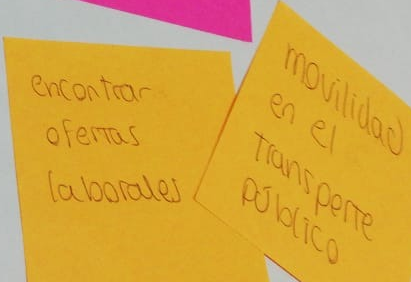 encontrar
ofertas
laborales
movilidad
en el
transporte
público